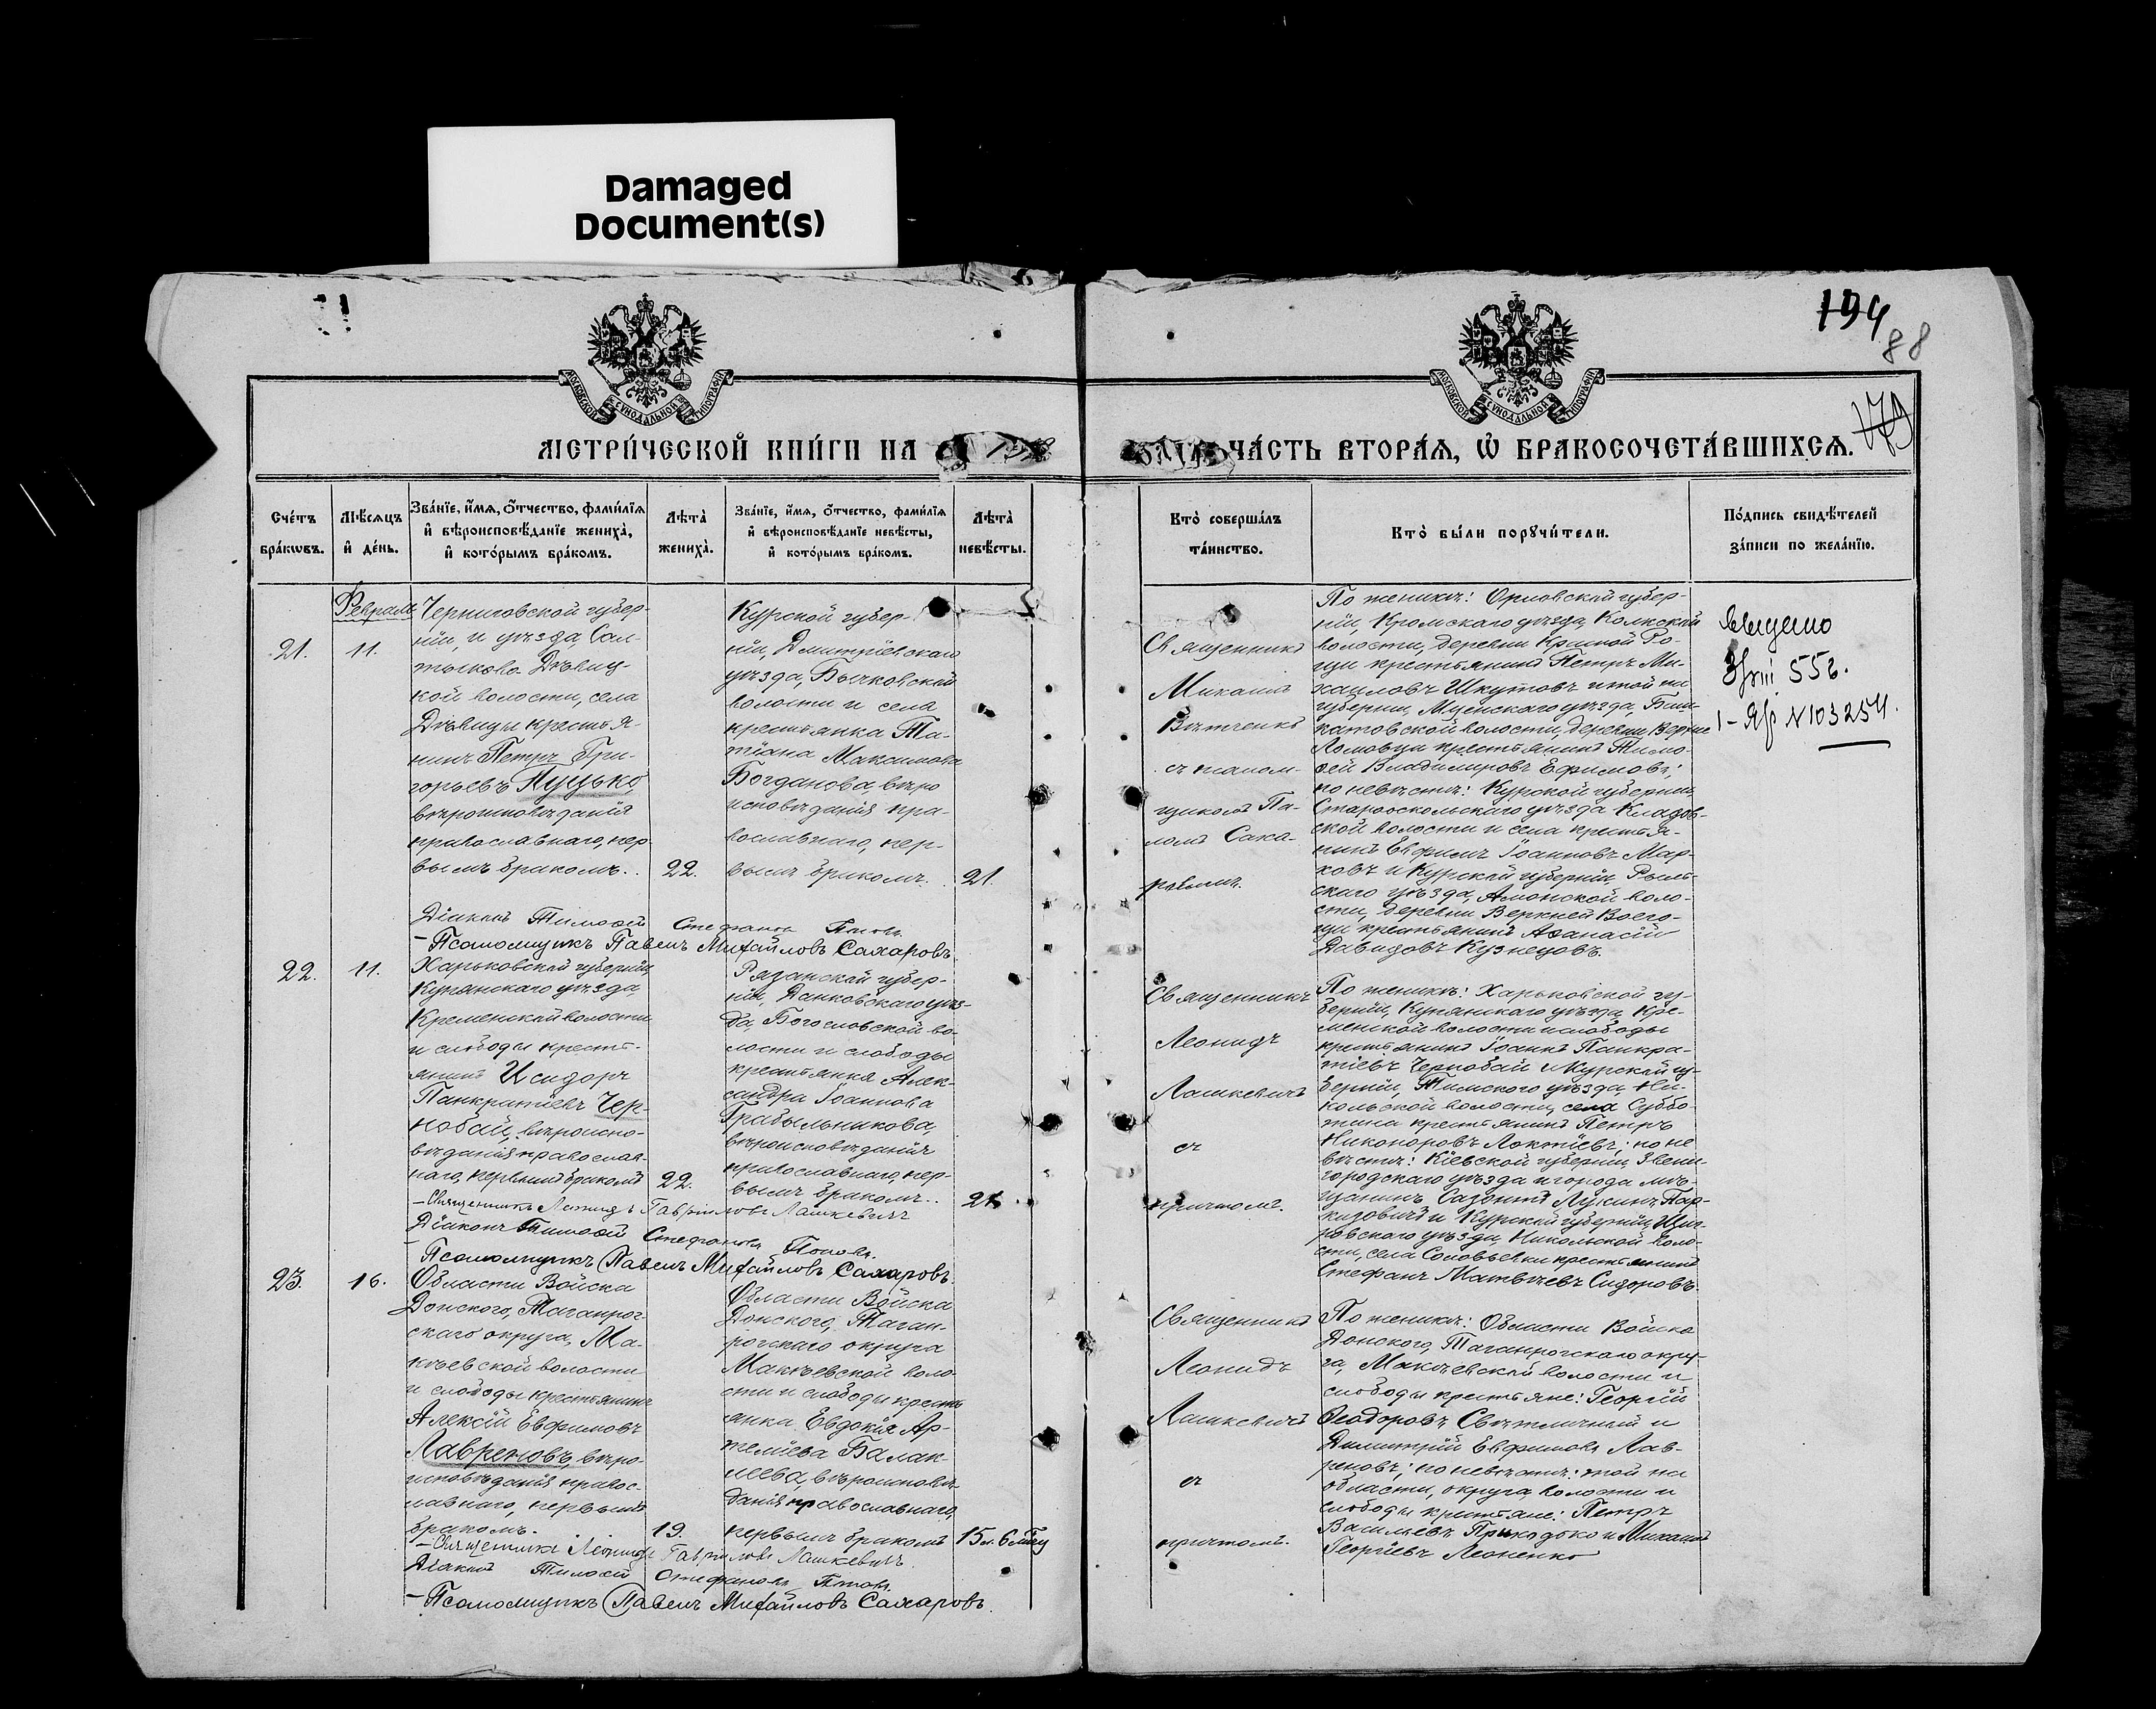 Damaged
Document(s)
194
88
179
МОСКОВСКОЙ СѴНОДАЛЬНОЙ ТИПОГРАФІИ
МОСКОВСКОЙ СѴНОДАЛЬНОЙ ТИПОГРАФІИ
МЕТРИ́ЧЕСКОЙ КНИ́ГИ НА
ЧА́СТЬ ВТОРА́Я, Ѡ БРАКОСОЧЕТА́ВШИХСЯ.
Сче́тъ бра́кѡвъ.
Мѣ́сяцъ и҆ де́нь.
Зва́нїе, и҆́мя, ѻ҆́тчество, фами́лїя и҆ вѣроисповѣ́данїе жениха̀, и҆ кото́рымъ бра́комъ.
Лѣта̀ жениха̀.
Зва́нїе, и҆́мя, ѻ҆́тчество, фами́лїя и҆ вѣроисповѣ́данїе невѣ́сты, и҆ кото́рымъ бра́комъ.
Лѣта̀ невѣ́сты.
Кто̀ соверша́лъ та́инство.
Кто̀ бы́ли порꙋчи́тели.
По́дпись свидѣ́телей за́писи по жела́нїю.
21.
Февраль
11.
Черниговской губер-
ніи, и уѣзда, Сал-
тыково-Дѣвиц-
кой волости, села
Дѣвицы крестья-
нинъ Петръ Гри-
горьевъ Куцько,
вѣроисповѣданія
православнаго, пер-
вымъ бракомъ.
22.
Курской губер-
ніи, Дмитріевскаго
уѣзда, Бычковской
волости и села
крестьянка Та-
тіана Максимова
Богданова вѣро
исповѣданія пра-
вославнаго, пер-
вымъ бракомъ.
21.
Священникъ
Михаилъ
съ псалом-
щикомъ Па-
ломъ Саха-
ровымъ.
По женихѣ: Орловской губер-
ніи, Кромскаго уѣзда,
волости, деревни Красной Ро-
щи крестьянинъ Петръ Ми-
хаиловъ Шкутовъ и той же
губерніи, Мценскаго уѣзда,
волости, деревни
крестьянинъ Тимо-
фей Владимировъ Ефимовъ;
по невѣстѣ: Курской губерніи
Старооскольскаго уѣзда Кладов-
ской волости и села крестья-
нинъ Евфимъ Іоанновъ Мар-
ковъ и Курской губерніи, Рыль-
скаго уѣзда, Амонской воло-
сти, деревни Верхней
крестьянинъ Аѳанасій
Давидовъ Кузнецовъ.
N 103254.
Діаконъ Тимоѳей Стефановъ Поповъ.
Псаломщикъ Павелъ Михайловъ Сахаровъ.
22.
11.
Харьковской губерніи,
Купянскаго уѣзда,
Кременской волости
и слободы кресть-
янинъ Исидоръ
Панкратіевъ Чер-
нобай, вѣроиспо-
вѣданія православ-
наго, первымъ бракомъ
22.
Рязанской губер-
ніи, Данковскаго уѣз-
да, Богословской во-
лости и слободы
крестьянка Алек-
сандра Іоаннова
Грабыльникова,
вѣроисповѣданія
православнаго, пер-
вымъ бракомъ.
21.
Священникъ
Леонидъ
Лашкевичъ
съ
причтомъ.
По женихѣ: Харьковской гу-
берніи, Купянскаго уѣзда, Кре-
менской волости и слободы
крестьянинъ Іоаннъ Панкра-
тіевъ Чернобай и Курской гу-
берніи, Тимскаго уѣзда, Ни-
кольской волости, села Суббо-
тина крестьянинъ Петръ
Никоноровъ Локтіевъ; по не
вѣстѣ: Кіевской губерніи, Звени-
городскаго уѣзда и города мѣ-
щанинъ Лукинъ
и Курской губерніи, Щиг-
ровскаго уѣзда, Никольской воло-
сти, села Соловьевки крестьянинъ
Стефанъ Матвѣевъ Сидоровъ.
Священникъ Леонидъ Гавриловъ Лашкевичъ
Діаконъ Тимоѳей Стефановъ Поповъ.
Псаломщикъ Павелъ Михайловъ Сахаровъ.
23.
16.
Области Войска
Донского, Таганрог-
скаго округа, Ма-
кѣевской волости
и слободы крестьянинъ
Алексій Евфимовъ
Лавреновъ, вѣро-
исповѣданія правос-
лавнаго, первымъ
бракомъ.
19.
Области Войска
Донского, Таган-
рогскаго округа
Макѣевской воло-
сти и слободы кресть
янка Евдокія Ар-
темиева Балак-
лѣева, вѣроисповѣ-
данія православнаго,
первымъ бракомъ
15 л. 6 мѣс
Священникъ
Леонидъ
Лашкевичъ
съ
причтомъ.
По женихѣ: Области Войска
Донского, Таганрогскаго окру-
га, Макѣевской волости и
слободы крестьяне: Георгій
Ѳеодоровъ Свѣтличный и
Димитрій Евфимовъ Лав-
реновъ; по невѣстѣ: той же
области, округа, волости и
слободы крестьяне: Петръ
Васильевъ Приходько и Михаилъ
Георгіевъ Леоненко
Священникъ Леонидъ Гавриловъ Лашкевичъ
Діаконъ Тимоѳей Стефановъ Поповъ.
Псаломщикъ Павелъ Михайловъ Сахаровъ.